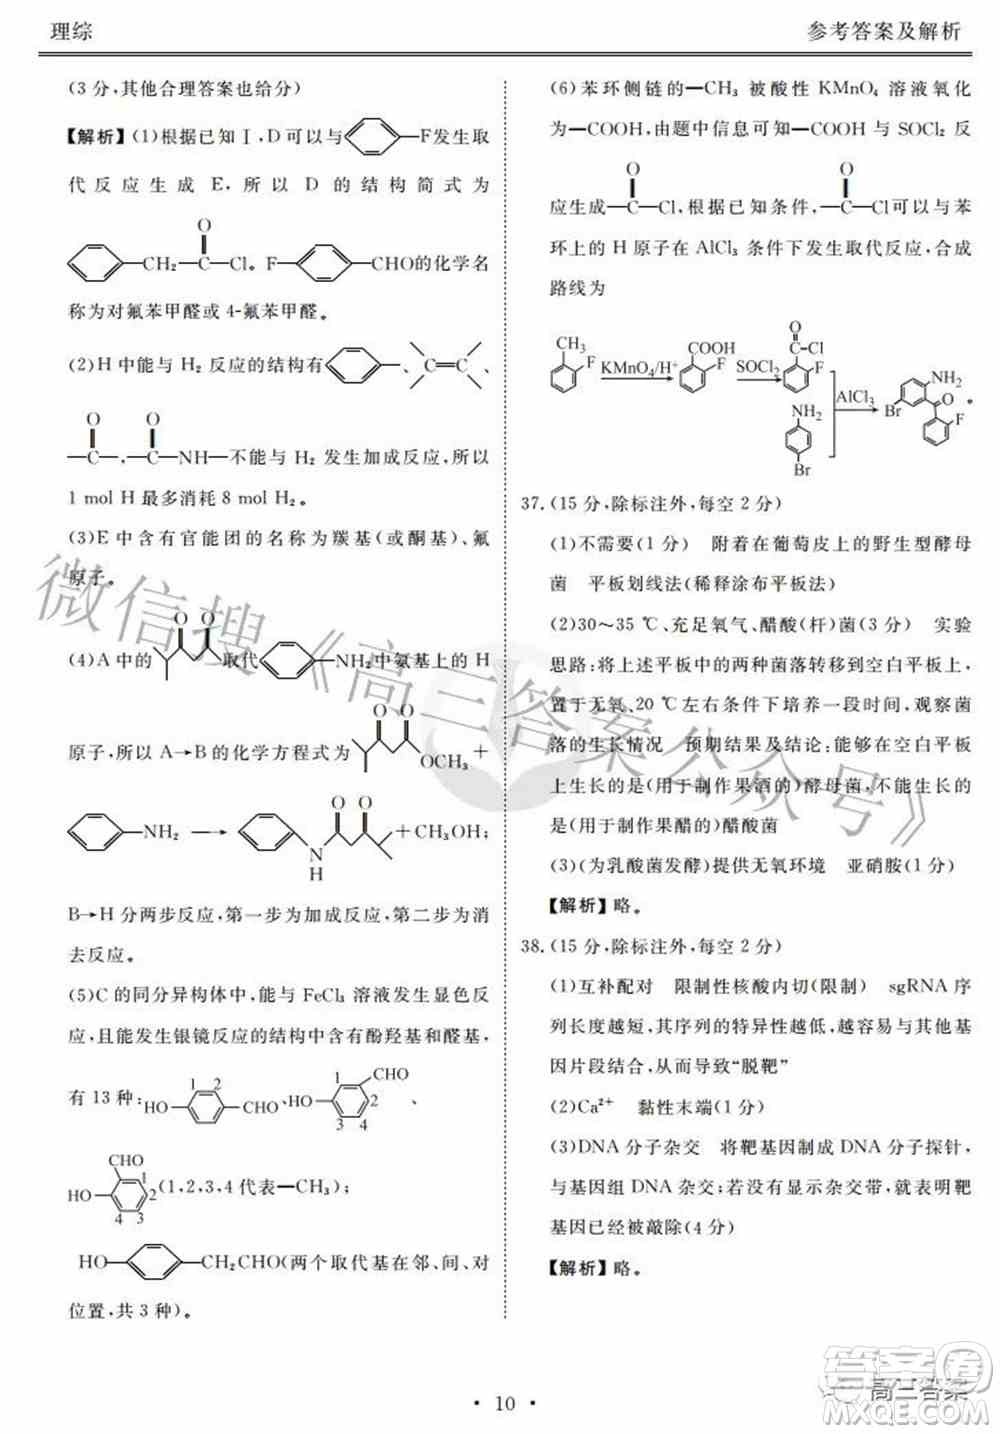 理综
参考答案及解析
(3 分,其他合理答案也给分)
【解析】(1)根据已知Ⅰ,D可以与 F发生取
代反应生成 E,所以 D 的结构简式为
O
CH₂—C—Cl。F— —CHO的化学名
称为对氟苯甲醛或 4-氟苯甲醛。
(2)H 中能与 H₂ 反应的结构有 、 C=C 、
O O
—C—,—C—NH—不能与 H₂ 发生加成反应,所以
1 mol H 最多消耗 8 mol H₂。
(3)E 中含有官能团的名称为羰基(或酮基)、氟
原子。
O O
(4)A 中的 取代 NH₂中氨基上的 H
O O
原子,所以 A→B 的化学方程式为 OCH₃ +
O O
NH₂ → N H +CH₃OH;
B→H 分两步反应,第一步为加成反应,第二步为消
去反应。
(5)C 的同分异构体中,能与 FeCl₃ 溶液发生显色反
应,且能发生银镜反应的结构中含有酚羟基和醛基,
有 13 种: HO 1 2 CHO、HO 1 CHO 2 3 4 、
CHO HO 1 2 3 4 (1,2,3,4 代表—CH₃);
HO— —CH₂CHO(两个取代基在邻、间、对
位置,共 3 种)。
(6)苯环侧链的—CH₃ 被酸性 KMnO₄ 溶液氧化
为—COOH,由题中信息可知—COOH 与 SOCl₂ 反
O O
应生成—C—Cl,根据已知条件,—C—Cl可以与苯
环上的 H 原子在 AlCl₃ 条件下发生取代反应,合成
路线为
CH₃ F KMnO₄/H⁺ COOH F SOCl₂ O Cl F
NH₂ Br AlCl₃ NH₂ Br O F 。
37.(15 分,除标注外,每空 2 分)
(1)不需要(1 分) 附着在葡萄皮上的野生型酵母
菌 平板划线法(稀释涂布平板法)
(2)30~35 ℃、充足氧气、醋酸(杆)菌(3 分) 实验
思路:将上述平板中的两种菌落转移到空白平板,
置于无氧、20 ℃左右条件下培养一段时间,观察菌
落的生长情况 预期结果及结论:能够在空白平板
上生长的是(用于制作果酒的)酵母菌,不能生长
的是(用于制作果醋的)醋酸菌
(3)(为乳酸菌发酵)提供无氧环境 亚硝胺(1 分)
【解析】略。
38.(15 分,除标注外,每空 2 分)
(1)互补配对 限制性核酸内切(限制) sgRNA 序
列长度越短,其序列的特异性越低,越容易与其他基
因片段结合,从而导致“脱靶”
(2)Ca²⁺ 黏性末端(1 分)
(3)DNA 分子杂交 将靶基因制成 DNA 分子探针,
与基因组 DNA 杂交;若没有显示杂交带,就表明靶
基因已经被敲除(4 分)
【解析】略。
微信搜《高三答案公众号》
• 10 •
答案圈
高三答案
MXQE.COM